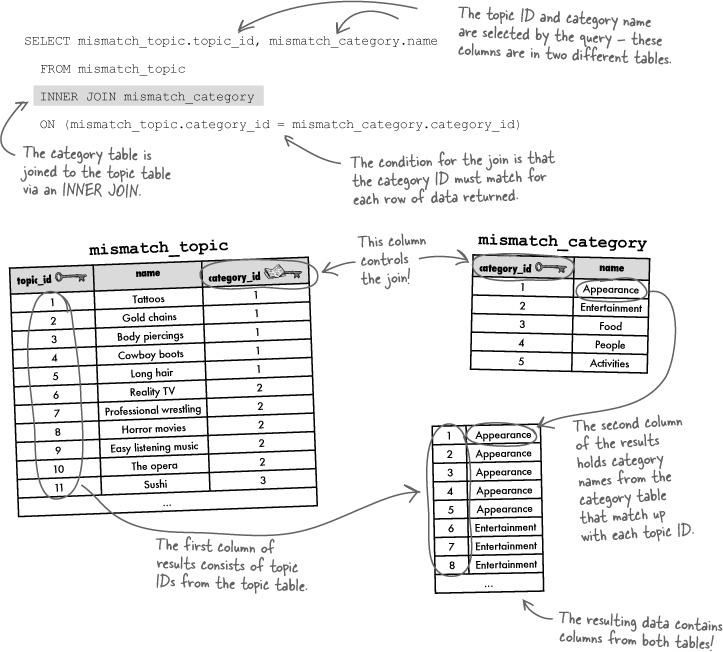 The topic ID and category name
are selected by the query – these
columns are in two different tables.
SELECT mismatch_topic.topic_id, mismatch_category.name
FROM mismatch_topic
INNER JOIN mismatch_category
ON (mismatch_topic.category_id = mismatch_category.category_id)
The category table is
joined to the topic table
via an INNER JOIN.
The condition for the join is that
the category ID must match for
each row of data returned.
mismatch_topic
topic_id name category_id
1 Tattoos 1
2 Gold chains 1
3 Body piercings 1
4 Cowboy boots 1
5 Long hair 1
6 Reality TV 2
7 Professional wrestling 2
8 Horror movies 2
9 Easy listening music 2
10 The opera 2
11 Sushi 3
...
This column
controls
the join!
mismatch_category
category_id name
1 Appearance
2 Entertainment
3 Food
4 People
5 Activities
1 Appearance
2 Appearance
3 Appearance
4 Appearance
5 Appearance
6 Entertainment
7 Entertainment
8 Entertainment
...
The second column
of the results
holds category
names from the
category table
that match up
with each topic ID.
The first column of
results consists of topic
IDs from the topic table.
The resulting data contains
columns from both tables!